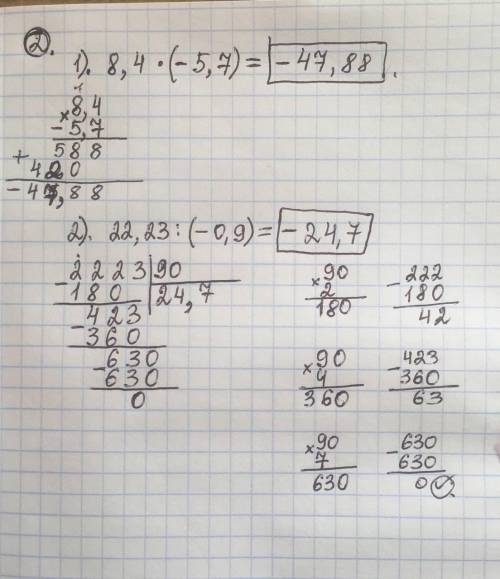 2.
1). 8,4 · (-5,7) = -47,88.
1
× 8,4
-5,7
588
+ 420
-47,88
2). 22,23 : (-0,9) = -24,7
- 2223 | 90
180 | 24,7
- 423
360
- 630
630
0
× 90
2
180
- 222
180
42
× 90
4
360
- 423
360
63
× 90
7
630
- 630
630
0